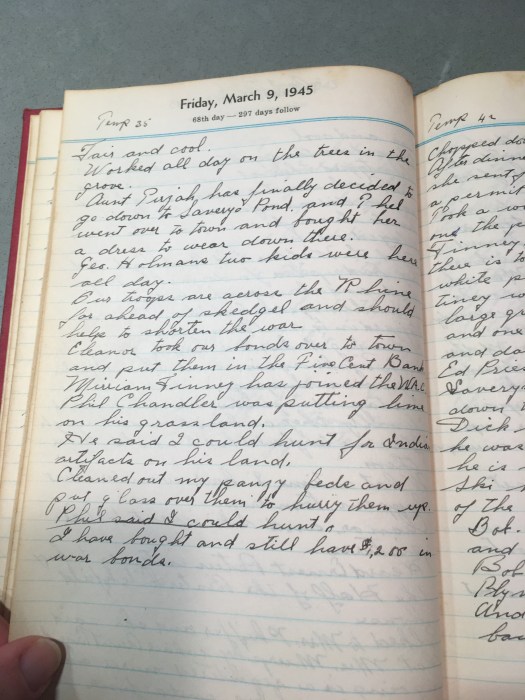 Friday, March 9, 1945
68th day — 297 days follow
Temp 35
Fair and cool.
Worked all day on the trees in the
grove.
Aunt has finally decided to
go down to Saverys Pond. and
went over to town and bought her
a dress to wear down there.
Geo. Holmans two kids were here
all day.
Our troops are across the Rhine
far ahead of skedgel and should
help to shorten the war
Eleanor took our bonds over to town
and put them in the Five Cent Bank
Mirriam Finney has joined the
Phil Chandler was putting lime
on his grassland.
He said I could hunt for India
artifacts on his land.
Cleaned out my pansy beds and
put glass over them to hurry them up.
Phil said I could hunt.
I have bought and still have $1,200 in
war bonds.
Temp 42
Chopped do
After dinn
she sent
a permit
Took a
one the p
Finney
there is to
white p
tiney
large gr
and one
and da
Ed Pries
Savery
down
Dick
he was
he is
Ski
of the
Bob.
and
Bob
Ply
And
bac